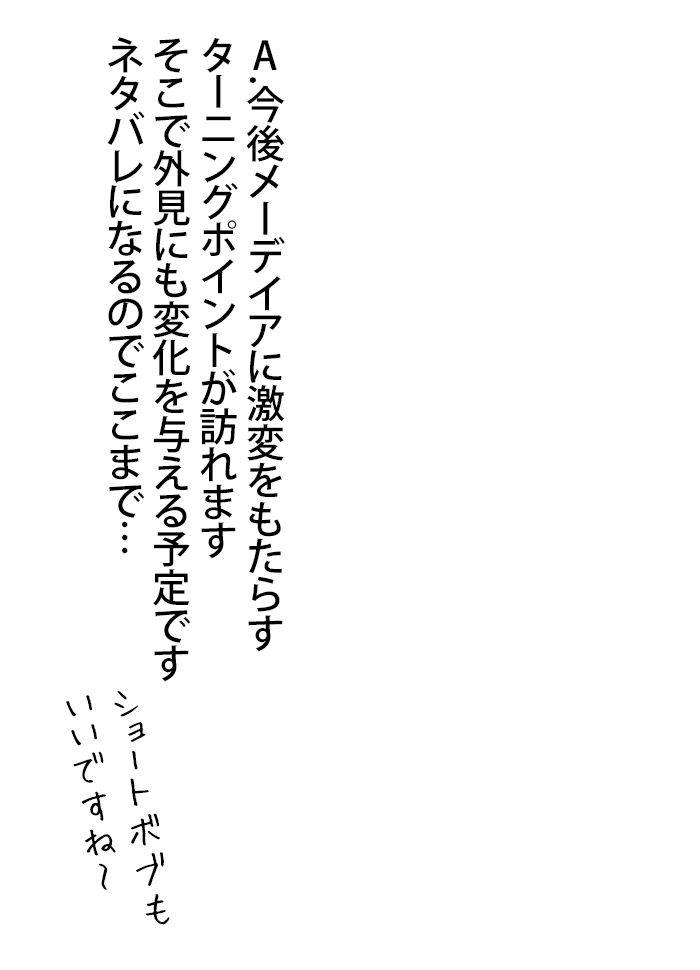 A.今後メーデイアに激変をもたらす
ターニングポイントが訪れます
そこで外見にも変化を与える予定です
ネタバレになるのでここまで…
ショートボブも
いいですね～